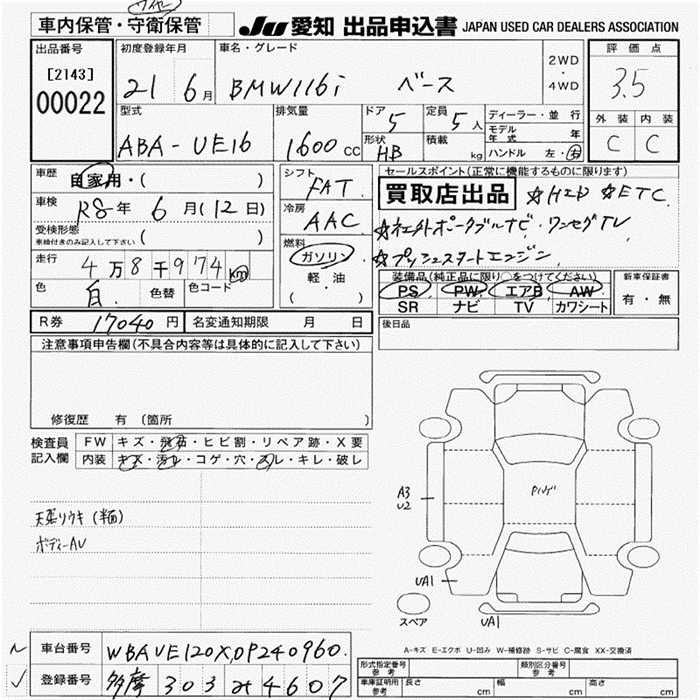 車内保管・守衛保管
JU 愛知 出品申込書 JAPAN USED CAR DEALERS ASSOCIATION
出品番号 初度登録年月 車名・グレード 評価点
[2143] 21 6月 BMW116i ベース 2WD・4WD 3.5
00022
型式 排気量 ドア 5 定員 5人 ディーラー・並行 外装 内装
モデル年式 年
ABA-UE16 1600cc 形状 HB 積載 kg ハンドル 左・右 C C
車歴 自家用・( ) シフト FAT セールスポイント(正常に機能するものに限ります)
買取店出品 ☆HID ☆ETC
車検 R8年 6月(12日) 冷房 AAC
☆社外ポータブルナビ・ワンセグTV
受検形態 車検付きのみ記入して下さい ( )
☆プッシュスタートエンジン
走行 4万8千974km 燃料 ガソリン・軽・油 ( )
装備品(純正品に限り○をつけてください) 新車保証書
色 白 色替 色コード PS PW エアB AW 有・無
SR ナビ TV カワシート
R券 17040円 名変通知期限 月 日 後日品
注意事項申告欄(不具合内容等は具体的に記入して下さい)
修復歴 有 (箇所 )
検査員記入欄 FW キズ・飛石・ヒビ割・リペア跡・X要
内装 キズ・汚れ・コゲ・穴・スレ・キレ・破レ
A3
U2
天張りウキ(半面)
ボディーAU
UA1
スペア UA1
A-キズ E-エクボ U-凹み W-補修跡 S-サビ C-腐食 XX-交換済
車台番号 WBAVE120X0P240960.
登録番号 多摩 303 4607
形式指定番号 参考 類別区分番号 参考
車庫証明用 参考 長さ cm 幅 cm 高さ cm